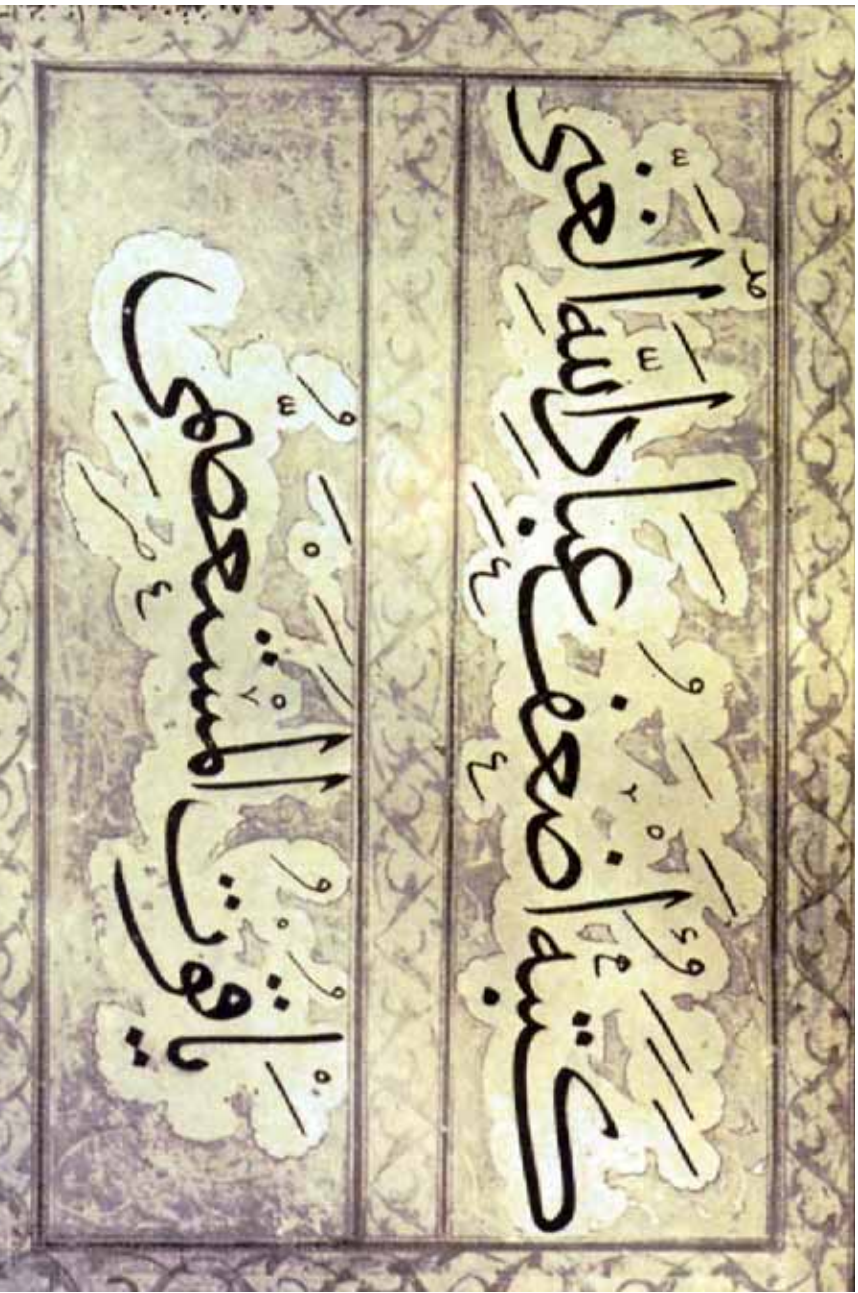 كتبه اضعف عباد الله الغني
ياقوت المستعصمي